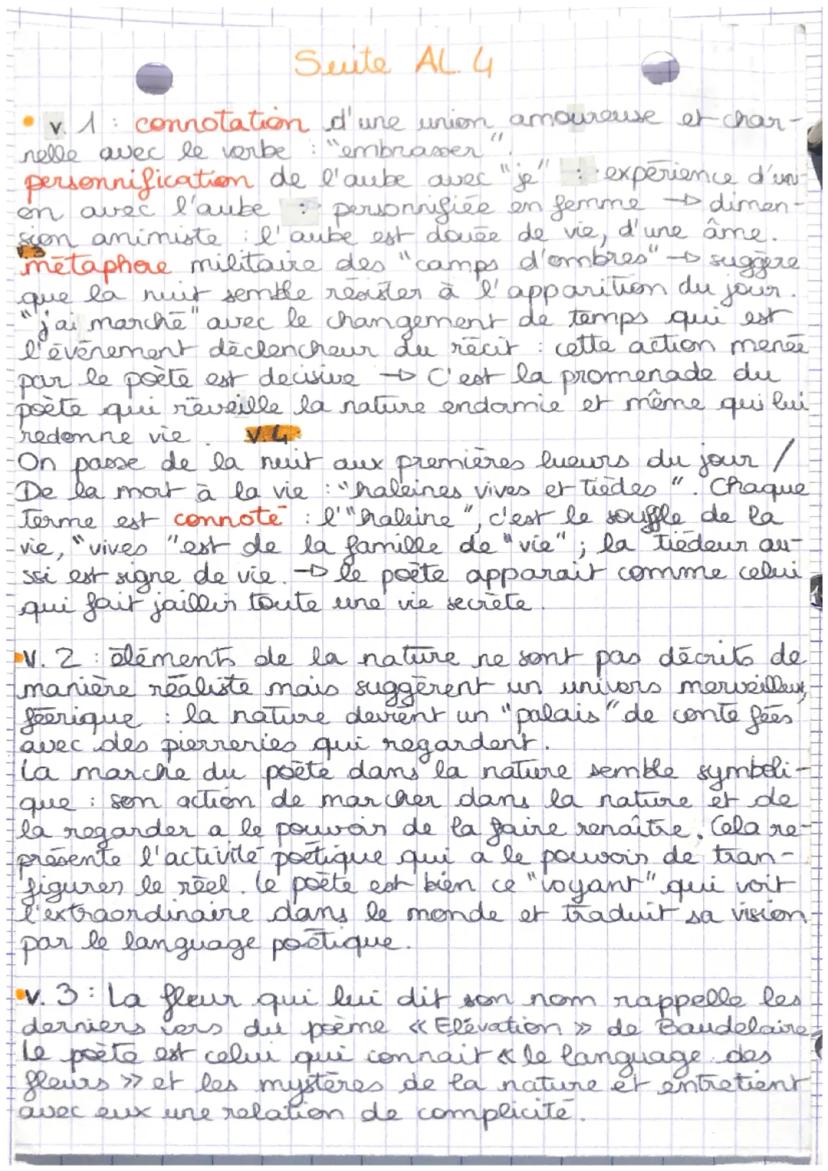 Suite AL. 4
• v. 1 : connotation d'une union amoureuse et char-
nelle avec le verbe : "embrasser".
personnification de l'aube avec "je" : expérience d'uni
on avec l'aube : personnifiée en femme → dimen-
sion animiste : l'aube est douée de vie, d'une âme.
v.3
métaphore militaire des "camps d'ombres" → suggère
que la nuit semble résister à l'apparition du jour.
"j'ai marché" avec le changement de temps qui est
l'événement déclencheur du récit : cette action menée
par le poète est decisive → C'est la promenade du
poète qui réveille la nature endormie et même qui lui
redonne vie. v.4
On passe de la nuit aux premières lueurs du jour /
De la mort à la vie : "haleines vives et tièdes". Chaque
terme est connoté : l'"haleine", c'est le souffle de la
vie, "vives" est de la famille de "vie" ; la tiédeur au-
ssi est signe de vie. → le poète apparait comme celui
qui fait jaillir toute une vie secrète.
• v. 2 : éléments de la nature ne sont pas décrits de
manière réaliste mais suggèrent un univers merveilleux,
féerique : la nature devient un "palais" de conte fées
avec des pierreries qui regardent.
La marche du poète dans la nature semble symboli-
que : son action de marcher dans la nature et de
la regarder a le pouvoir de la faire renaître. Cela re-
présente l'activité poétique qui a le pouvoir de tran-
figurer le réel. Le poète est bien ce "voyant" qui voit
l'extraordinaire dans le monde et traduit sa vision
par le language poétique.
• v. 3 : La fleur qui lui dit son nom rappelle les
derniers vers du poème « Elévation » de Baudelaire.
Le poète est celui qui connait « le language des
fleurs » et les mystères de la nature et entretient
avec eux une relation de complicité.